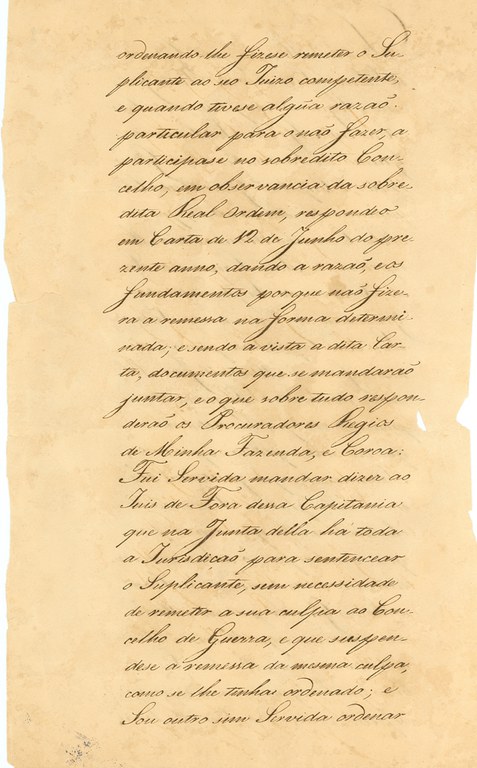 ordenando-lhe fizese remeter o Su-
plicante ao seo Juizo competente,
e quando tivese algũa razaõ
particular para o naõ fazer, a
participase no sobredito Con-
celho, em observancia da sobre-
dita Real Ordem, respondeo
em Carta de 12 de Junho do pre-
zente anno, dando a razaõ, e os
fundamentos porque naõ fize-
ra a remessa na forma determi-
nada; e sendo a vista a dita Car-
ta, documentos que se mandaraõ
juntar, e o que sobre tudo respon-
deraõ os Procuradores Regios
de Minha Fazenda, e Coroa:
Fui Servida mandar dizer ao
Juis de Fora dessa Capitania
que na Junta della há toda
a Jurisdicaõ para sentencear
o Suplicante, sem necessidade
de remeter a sua culpa ao Con-
celho de Guerra, e que suspen-
dese a remessa da mesma culpa,
como se lhe tinha ordenado; e
Sou outro sim Servida ordenar